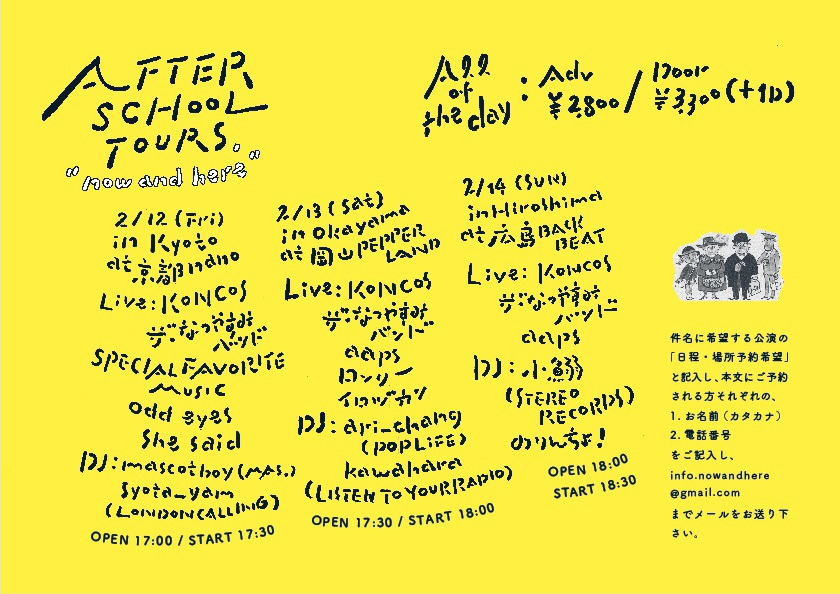 AFTER
SCHOOL
TOURS.
"now and here"
All
of
the day
:
Adv
¥2,800
/
Door
¥3,300(+1D)
2/12 (Fri)
in Kyoto
at 京都nano
Live: KONCOS
ザ・なつやすみ
バンド
SPECIAL FAVORITE
MUSIC
Odd eyes
She said
DJ: mascotboy (MAS.)
Syota-yam
(LONDON CALLING)
OPEN 17:00 / START 17:30
2/13 (Sat)
in Okayama
at 岡山PEPPER
LAND
Live: KONCOS
ザ・なつやすみ
バンド
aaps
ロンリー
イロヅカツ
DJ: ari-chang
(POPLIFE)
kawahara
(LISTEN TO YOUR RADIO)
OPEN 17:30 / START 18:00
2/14 (SUN)
in Hiroshima
at 広島BACK
BEAT
Live: KONCOS
ザ・なつやすみ
バンド
aaps
DJ: 小鰯
(STEREO
RECORDS)
のりんちょ!
OPEN 18:00
START 18:30
件名に希望する公演の
「日程・場所予約希望」
と記入し、本文にご予約
される方それぞれの、
1. お名前（カタカナ）
2. 電話番号
をご記入し、
info.nowandhere
@gmail.com
までメールをお送り下
さい。